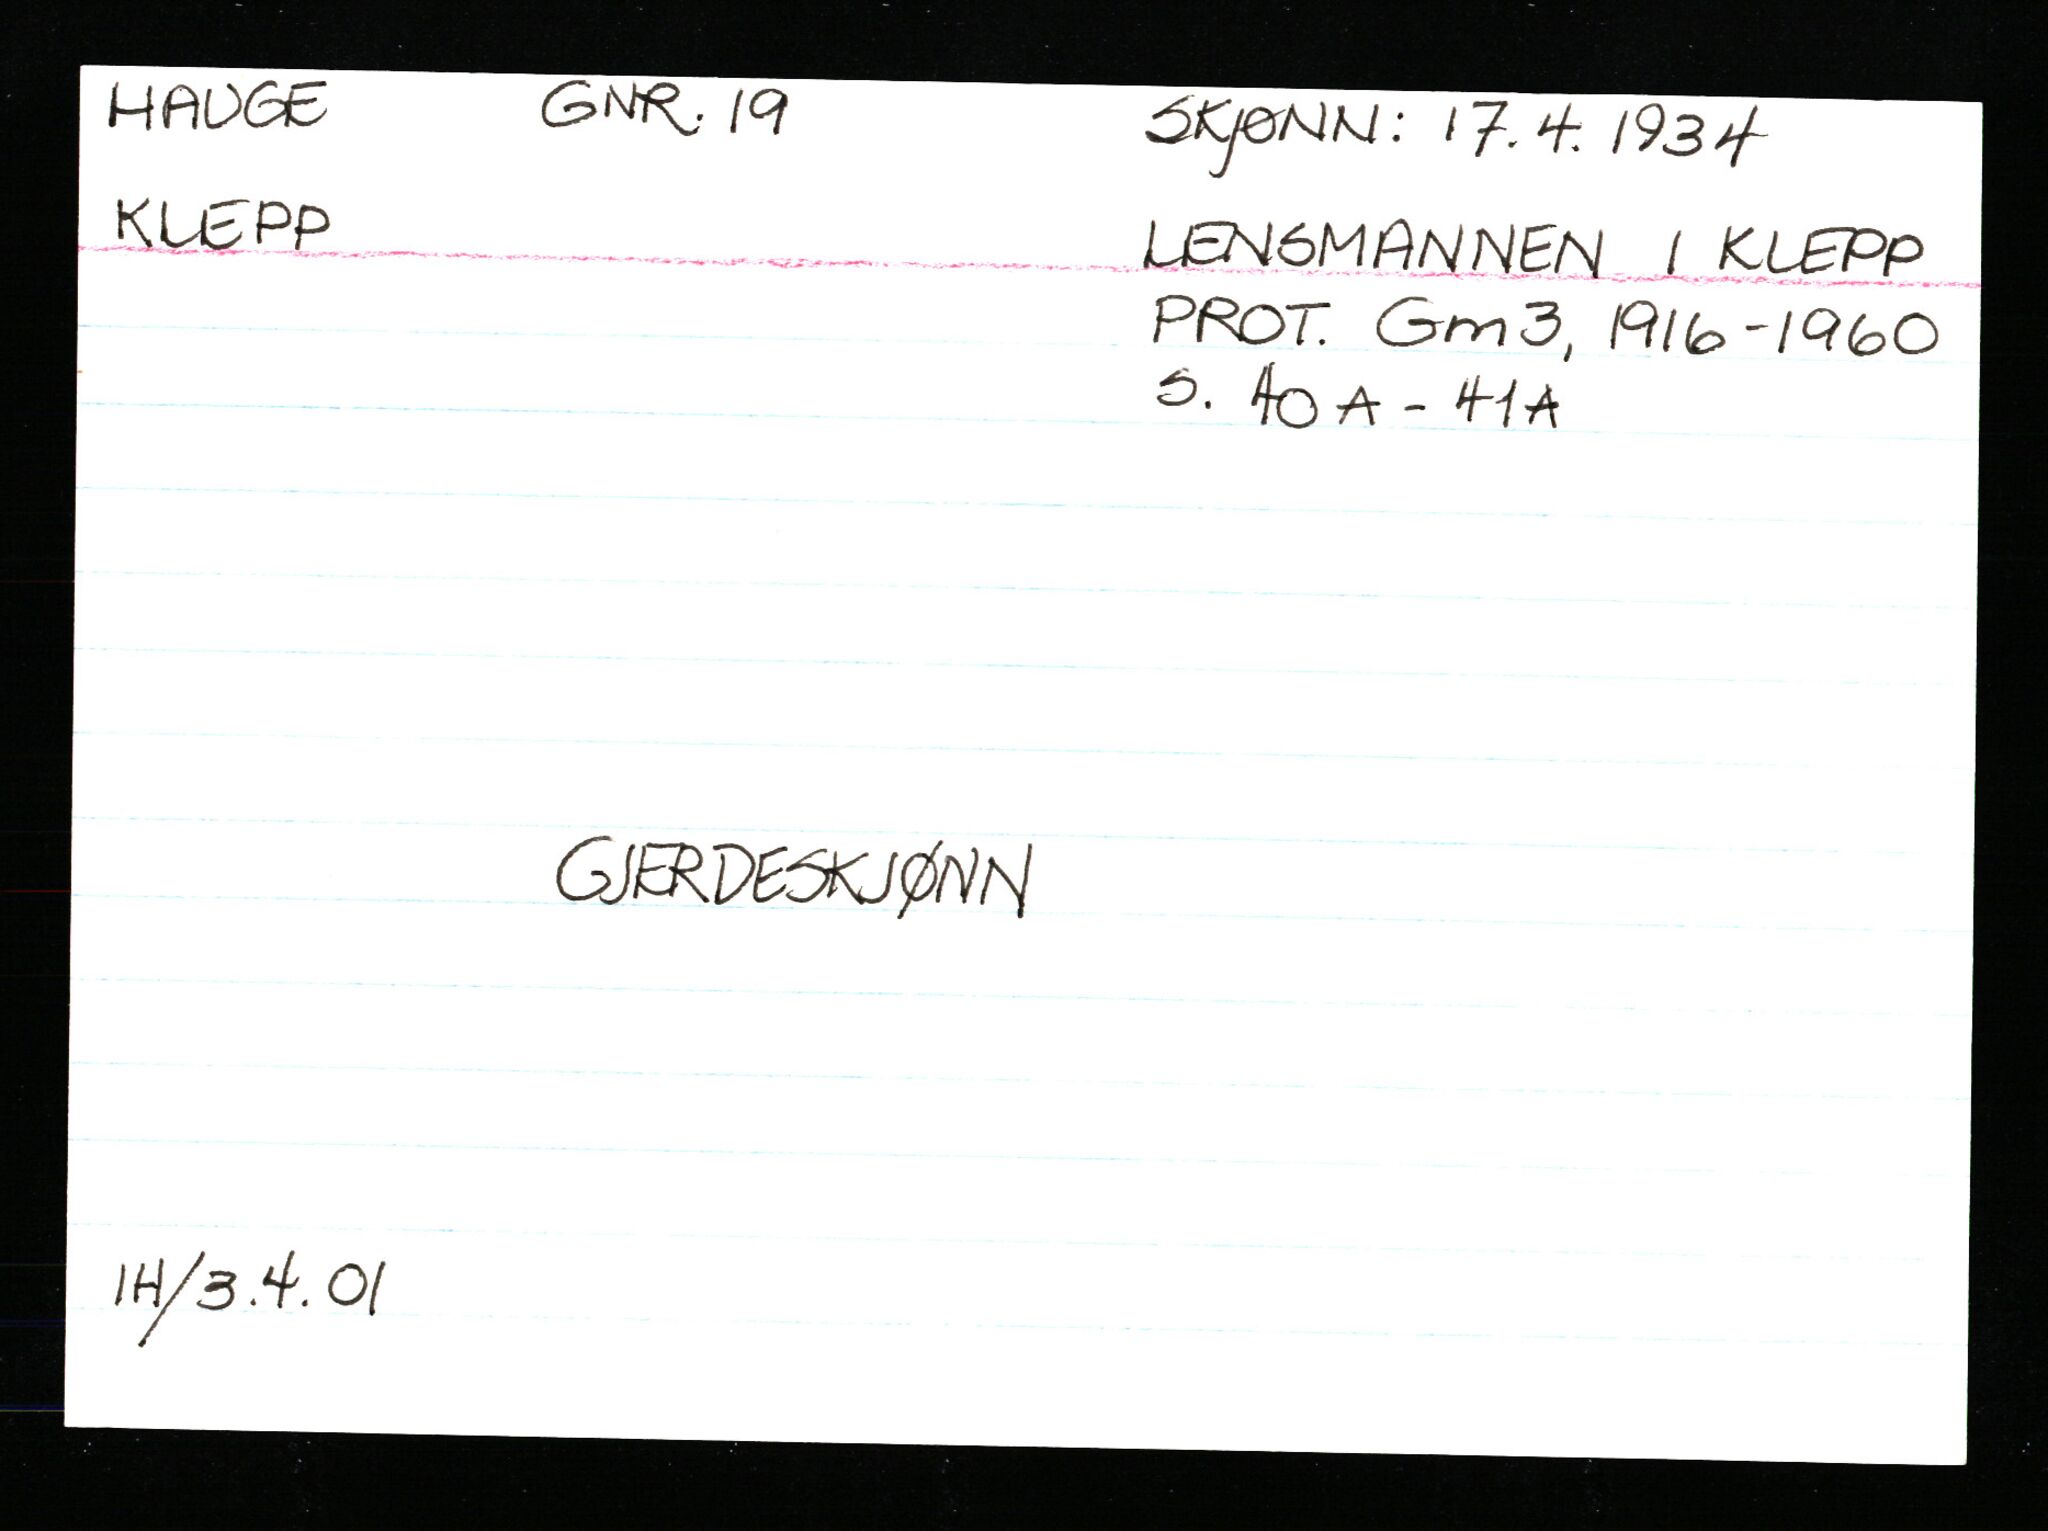 HAUGE GNR. 19 SKJØNN: 17.4.1934
KLEPP LENSMANNEN I KLEPP
PROT. Gm3, 1916-1960
S. 40A - 41A
GJERDESKJØNN
IH/3.4.01